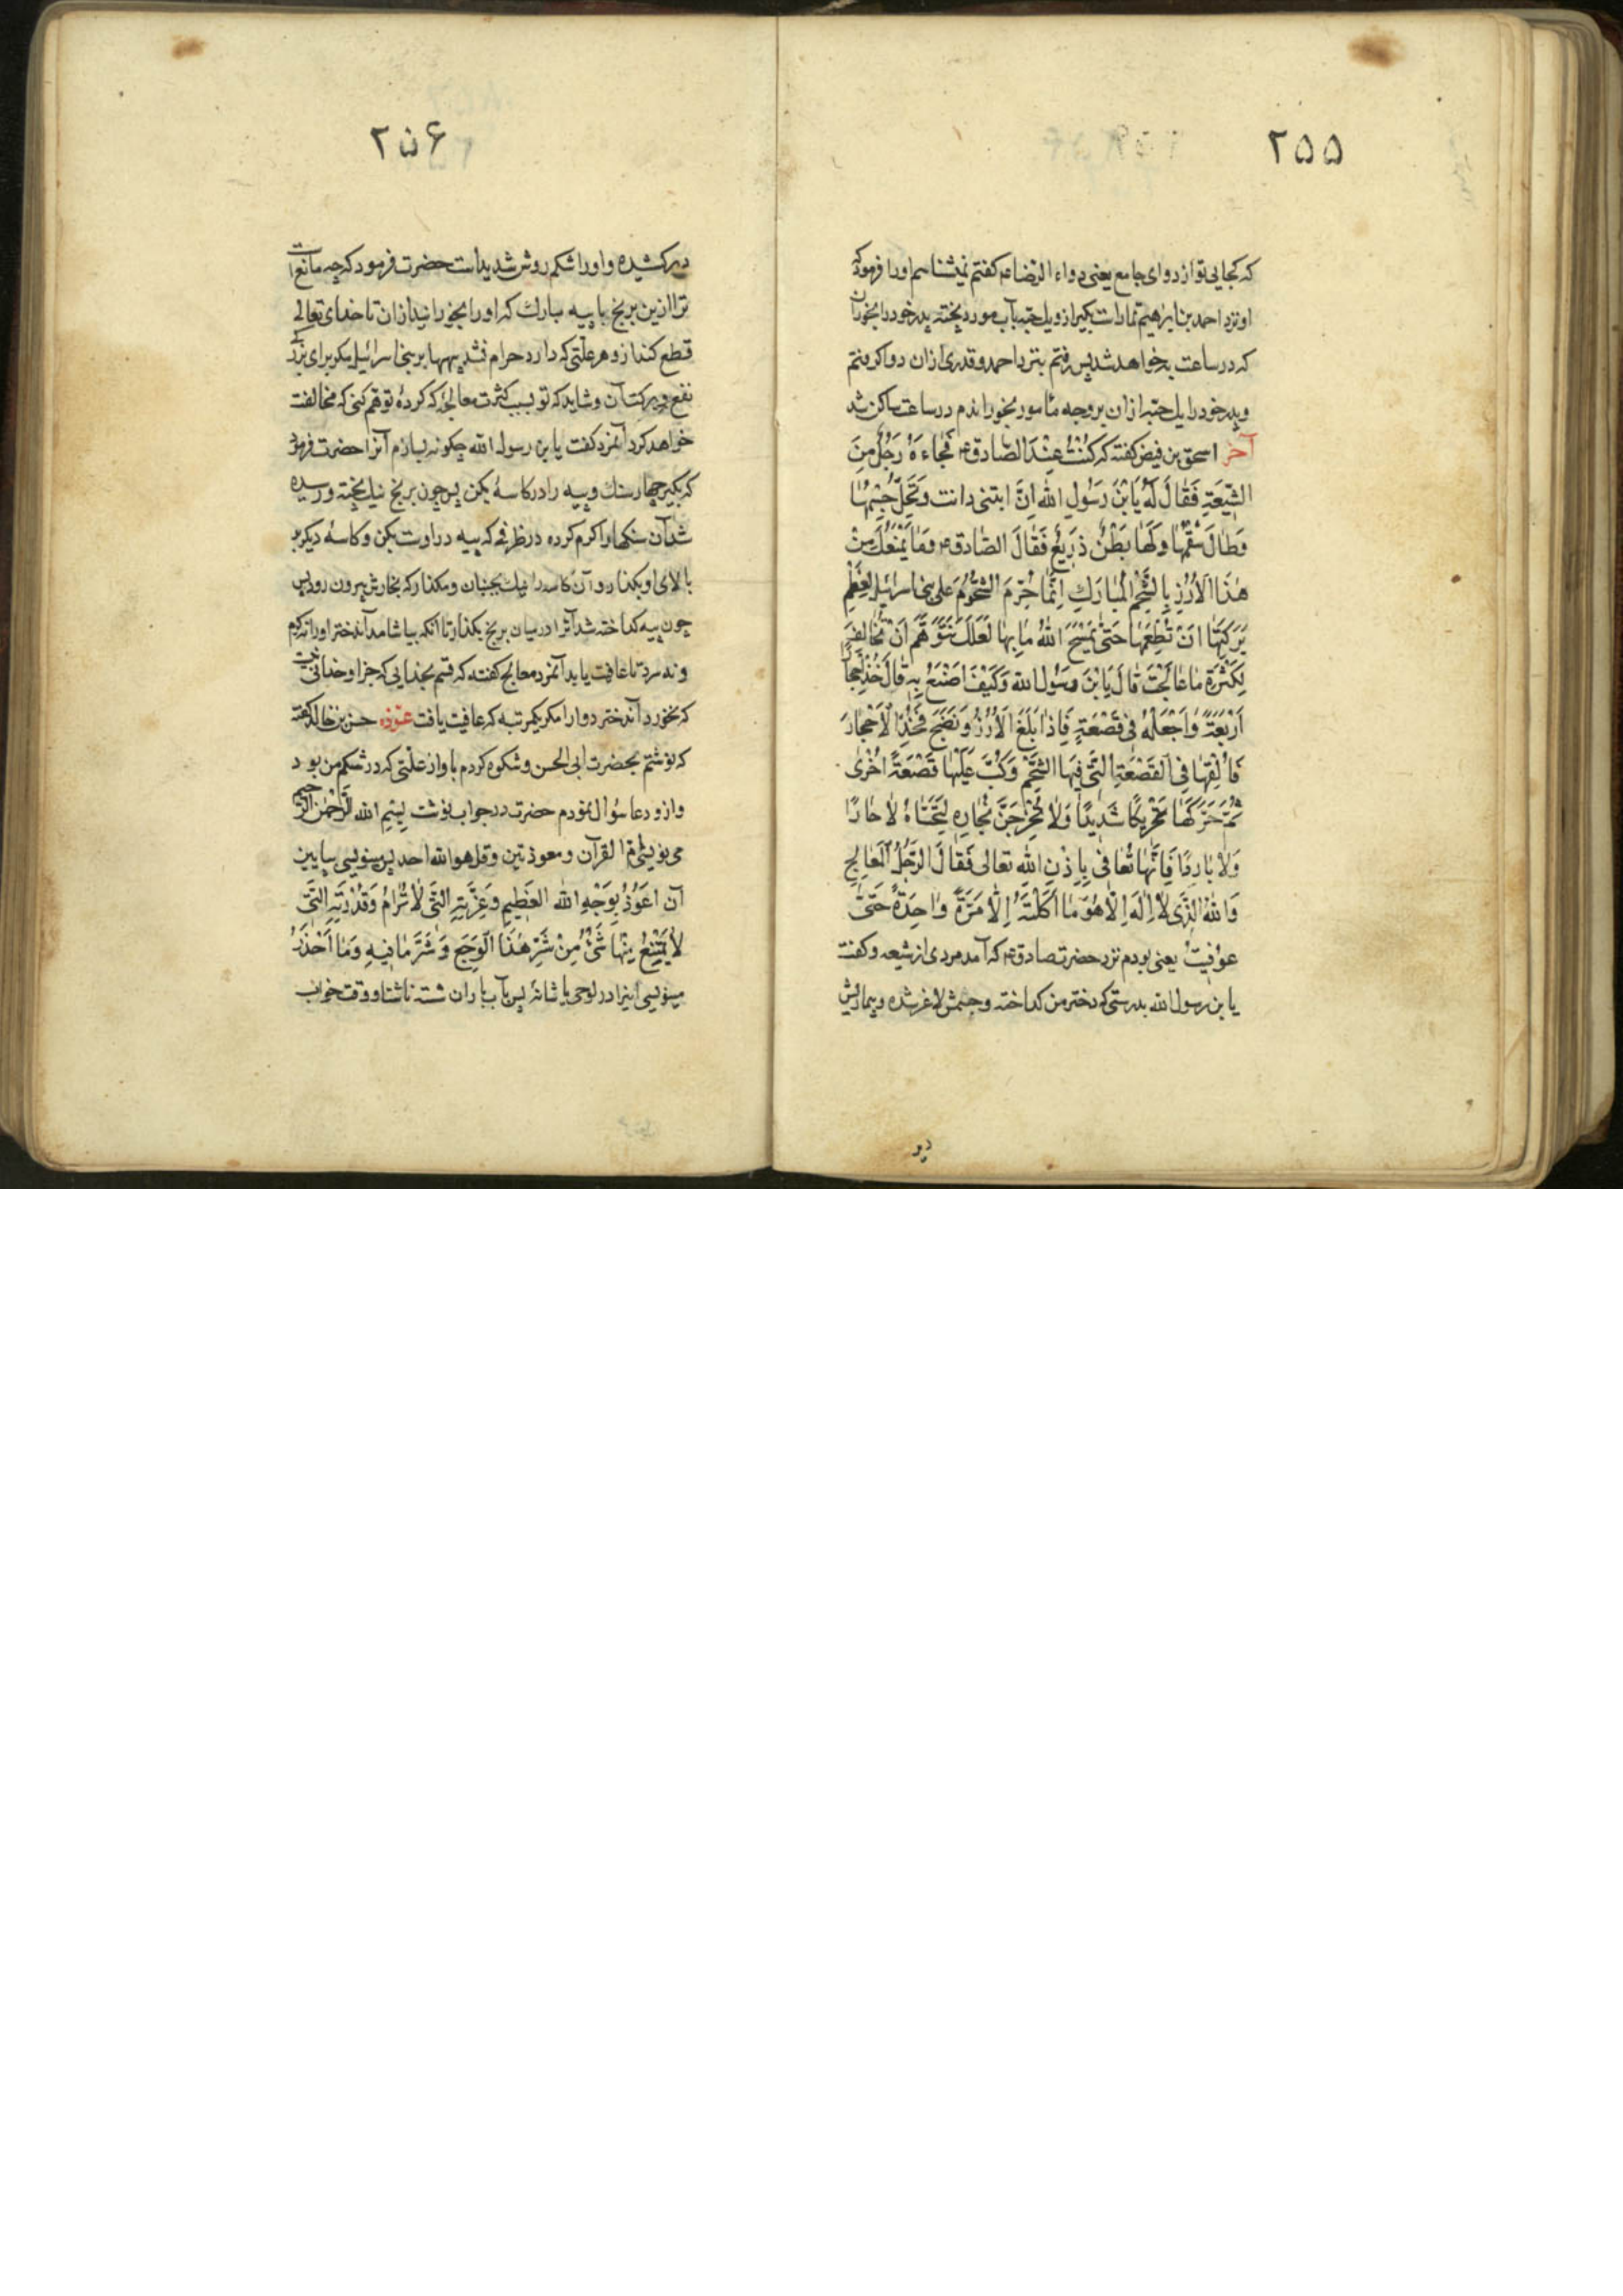 ۲۵۵
که کجایی تو از دوای جامع یعنی دواء الرضا ع کفتم نمیشناسم اورا فرمود که
او نزد احمد بن ابرهیم تمار است بکیر ازو یک حبه بآب مورد پخته پدر خود را بخوران
که در ساعت به خواهد شد پس رفتم بنزد احمد و قدری ازان دوا کرفتم
و پدر خود را یک حبه ازان بر وجه مأمور بخوراندم در ساعت ساکن شد
آخر اسحق بن فیض کفته که کُنْتُ عِنْدَ الصّادق ع فَجاءَهُ رَجُلٌ مِنَ
الشّیعَةِ فَقالَ لَهُ یَا بْنَ رَسُولِ اللهِ اِنَّ ابنتی دانت وَنَحِلَ جِسْمُها
وَطالَ سُقْمُها وَلَها بَطْنٌ ذَریعٌ فَقالَ الصّادق ع وَما یَمْنَعُکَ مِنْ
هٰذَا الْاَرُزِّ بِالشَّحْمِ الْمُبارَکِ اِنَّما حُرِّمَ الشُّحُومُ عَلی بنی اسرائیل لِعِظَمِ
بَرَکَتِها اَنْ تُطْعِمَها حَتّی یَمْسَحَ اللهُ ما بِها لَعَلَّکَ تَتَوَهَّمُ اَنْ تُخالِفَ
لِکَثْرَةِ ما عالَجْتَ قالَ یَابْنَ رَسُولِ الله وَکَیْفَ اَصْنَعُ بِهِ قالَ خُذْ اَحْجاراً
اَرْبَعَةً وَاجْعَلْهُ فی قَصْعَةٍ فَاِذا بَلَغَ الْاَرُزُّ وَنَضَجَ فَخُذِ الْاَحْجارَ
فَاَلْقِها فِی الْقَصْعَةِ الَّتی فیهَا الشَّحْمُ وَکُبَّ عَلَیْها قَصْعَةً اُخْری
ثُمَّ حَرِّکْها تَحْریکاً شَدیداً وَلا تُخْرِجَنَّ بُخارِهِ لِتَحَسّاهُ لا حارّاً
وَلا بارِداً فَاِنَّها تُعافی بِاِذْنِ اللهِ تعالی فَقالَ الرَّجُلُ الْمَعالِجُ
وَاللهِ الَّذی لا اِلهَ اِلّا هُوَ ما اَکَلَتْهُ اِلّا مَرَّةً واحِدَةً حَتّی
عُوفِیَتْ یعنی بودم نزد حضرت صادق ع که آمد مردی از شیعه و کفت
یا بن رسول الله بدرستی که دختر من کداخته و جسمش لاغر شده و بیماریش
دیر
۲۵۶
دیر کشیده و اورا شکم روش شدید است حضرت فرمود که چه مانع است
ترا ازین برنج با پیه مبارک که اورا بخورانید ازان تا خدای تعالی
قطع کند ازو هر علتی که دارد حرام نشد پیهها بر بنی اسرائیل مکر برای بزرکی
نفع و برکت آن و شاید که تو بسبب کثرت معالجه که کرده توهم کنی که مخالفت
خواهد کرد آنمرد کفت یا بن رسول الله چکونه بسازم آنرا حضرت فرمود
که بکیر چهار سنک و پیه را در کاسهٔ بکن پس چون برنج نیک پخته و رسیده
شد آن سنکها را کرم کرده در ظرفی که پیه در اوست بکن و کاسهٔ دیکر بر
بالای او بکذار و آن کاسه را نیک بجنبان و مکذار که بخارش بیرون رود پس
چون پیه کداخته شد آنرا در میان برنج بکذار تا آنکه بیاشامد آندختر اورا نه کرم
و نه سرد تا عافیت یابد آنمرد معالج کفته که قسم بخدایی که جز او خدائی نیست
که نخورد آندختر دوا را مکر یکمرتبه که عافیت یافت عوذه حسن بن خالد کفته
که نوشتم بحضرت ابی الحسن و شکوه کردم باو از علتی که در شکم من بود
و ازو دعا سؤال نمودم حضرت در جواب نوشت بِسْمِ الله الرَّحْمٰنِ الرَّحیم
می نویسی ام القرآن و معوذتین و قل هو الله احد پس مینویسی بپایین
آن اَعُوذُ بِوَجْهِ اللهِ الْعَظیمِ وَعِزَّتِهِ الَّتی لا تُرامُ وَقُدْرَتِهِ الَّتی
لا یَمْتَنِعُ مِنْها شَیْءٌ مِنْ شَرِّ هٰذَا الْوَجَعِ وَشَرِّ ما فیهِ وَما اَحْذَرُ
مینویسی اینرا در لوحی یا شانهٔ پس بآب باران شسته ناشتا و وقت خواب